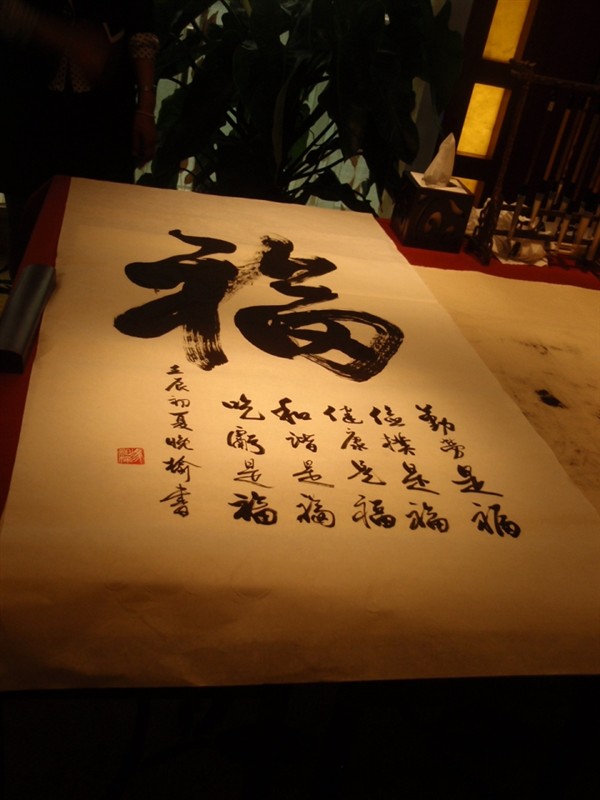 福
勤劳是福
俭朴是福
健康是福
和谐是福
吃亏是福
壬辰初夏晓榆書